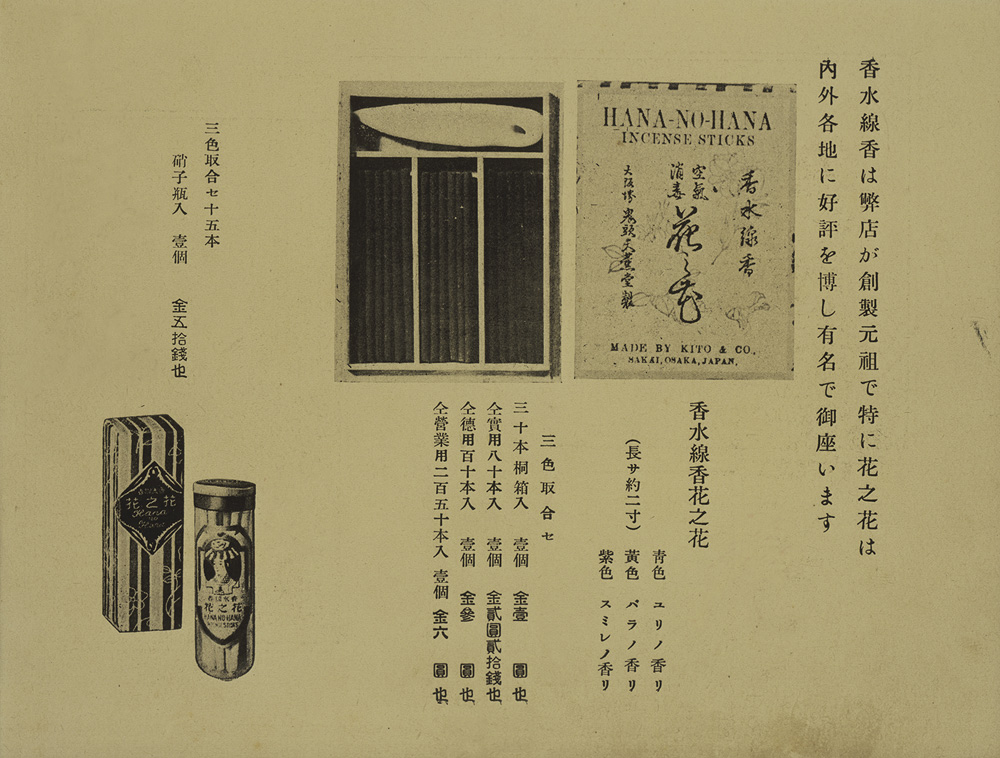 香水線香は弊店が創製元祖で特に花之花は
內外各地に好評を博し有名で御座います
HANA-NO-HANA
INCENSE STICKS
香水線香
空氣
消毒
花之花
大阪堺 鬼頭天薫堂製
MADE BY KITO & CO.,
SAKAI, OSAKA, JAPAN.
香水線香花之花
(長サ約二寸)
靑色 ユリノ香リ
黃色 バラノ香リ
紫色 スミレノ香リ
三色取合セ
三十本桐箱入 壹個 金壹圓也
仝實用八十本入 壹個 金貳圓貳拾錢也
仝德用百十本入 壹個 金參圓也
仝營業用二百五十本入 壹個 金六圓也
三色取合セ十五本
硝子瓶入 壹個 金五拾錢也
花之花
Hana
no
Hana
香水線香
花之花
HANA-NO-HANA